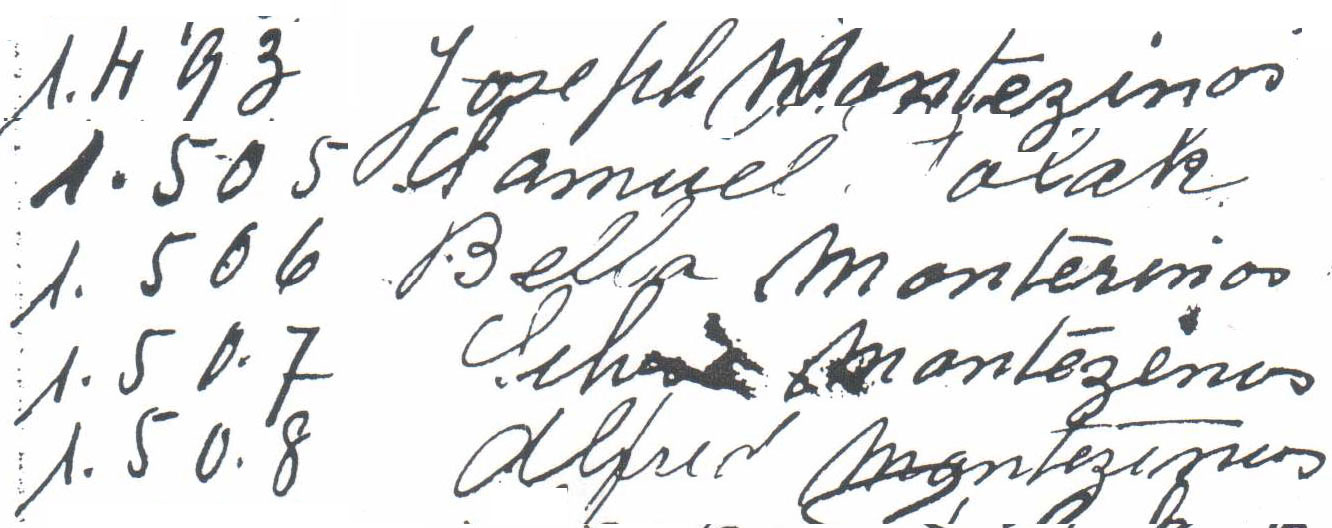 1.493 Joseph Montezinos
1.505 Samuel Polak
1.506 Bella Montezinos
1.50.7 Montezinos
1.50.8 Alfred Montezinos